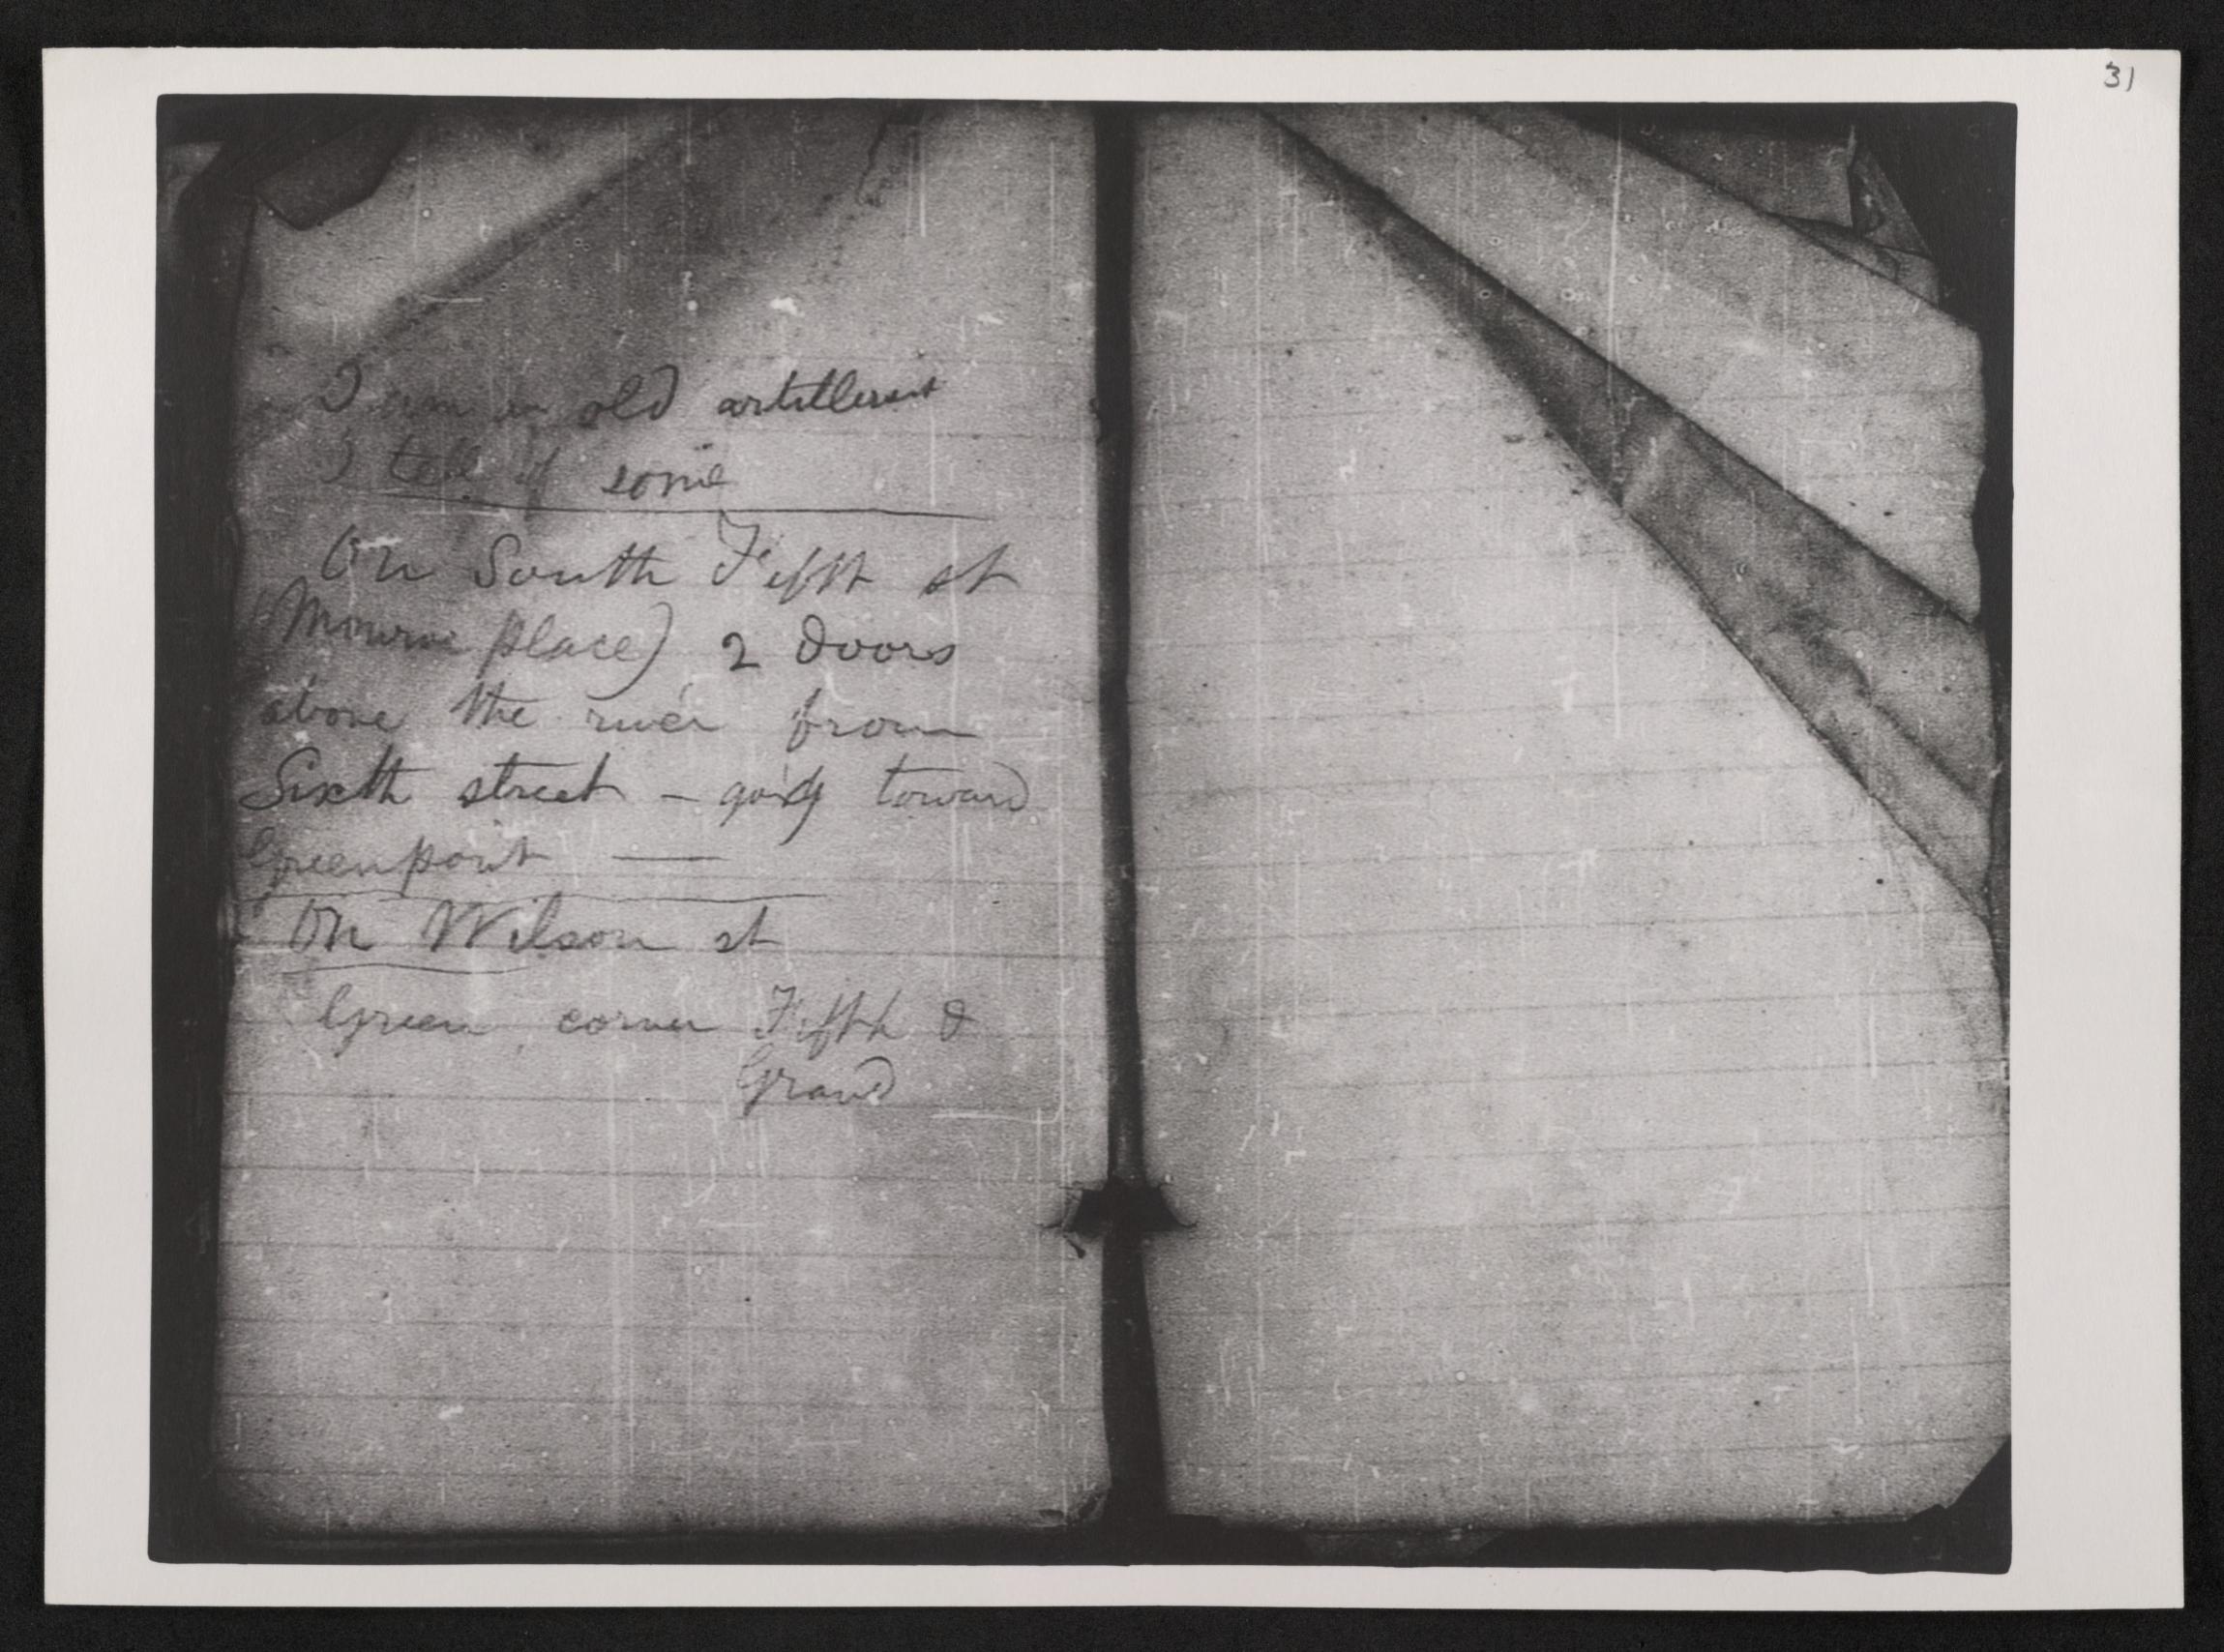 31
I am an old artillerist
I tell of some
On South Fifth st
(Monroe place) 2 doors
above the river from
Sixth street – going toward
Greenpoint —
On Wilson st
Green, corner Fifth &
Grand